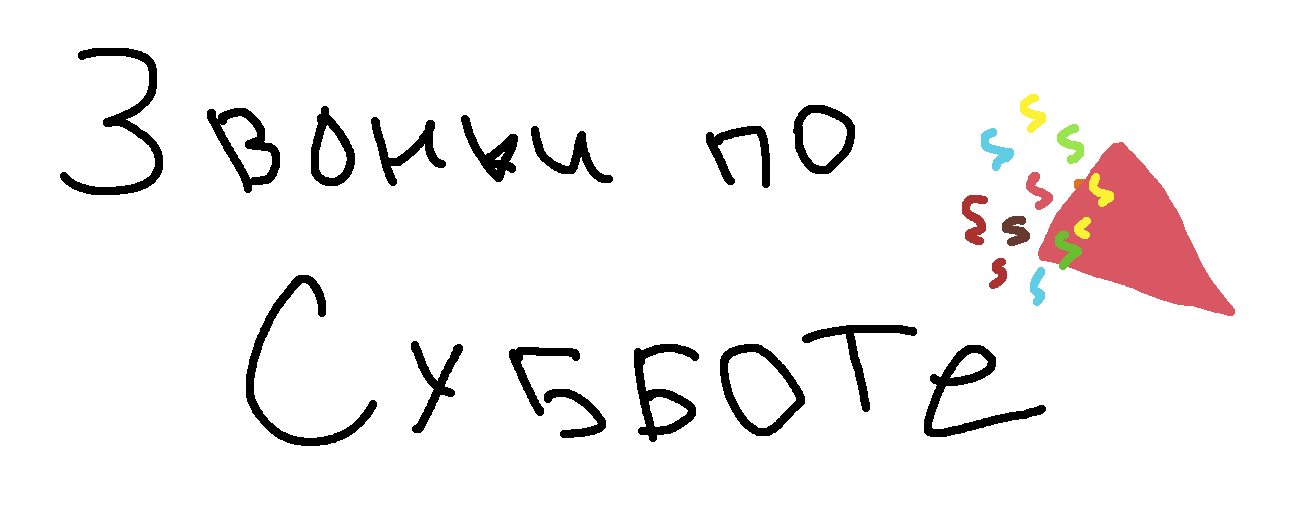 Звонки по
Субботе